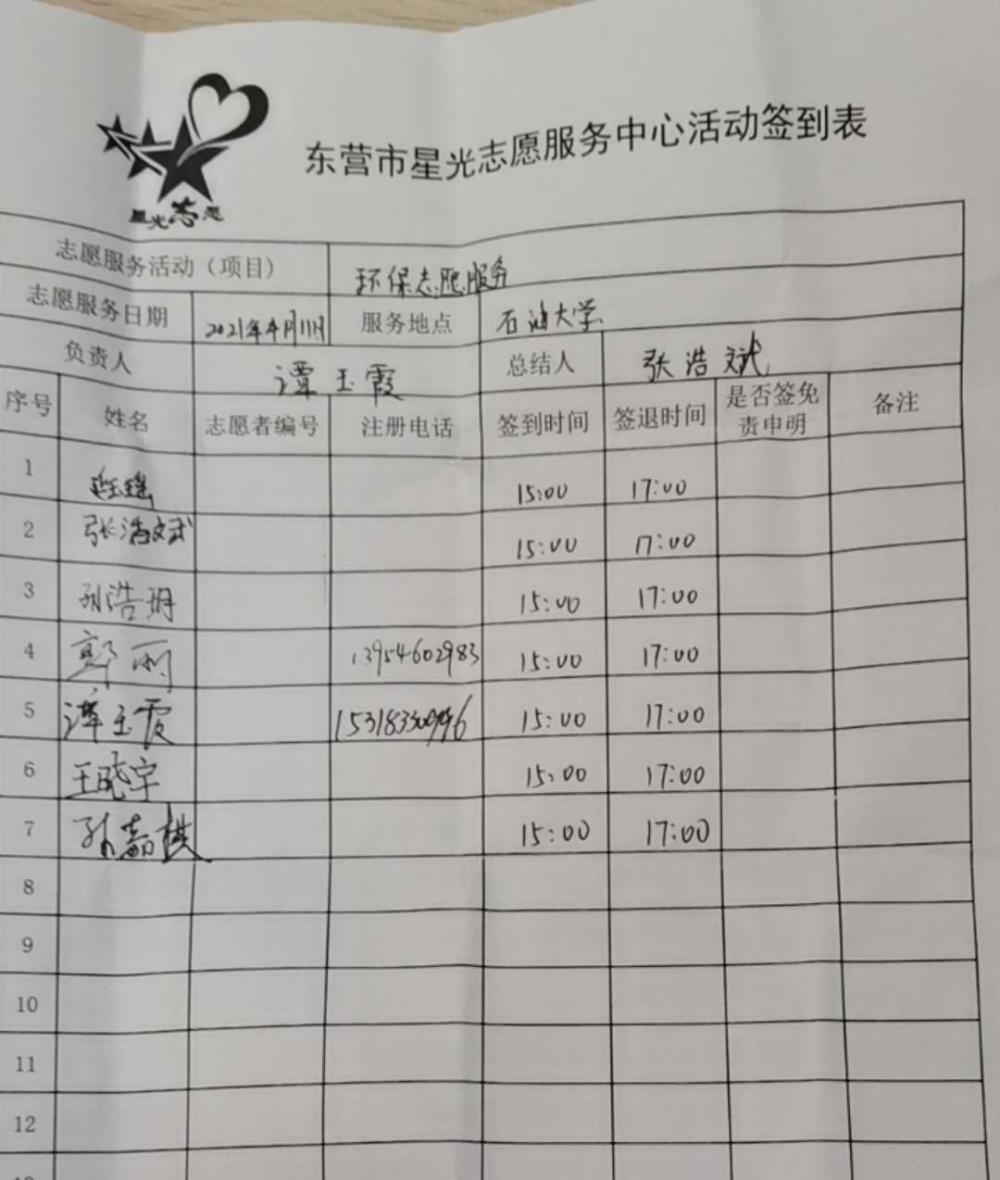 东营市星光志愿服务中心活动签到表
星光志愿
志愿服务活动（项目） 环保志愿服务
志愿服务日期 2021年4月11日 服务地点 石油大学
负责人 谭玉霞 总结人 张浩斌
序号 姓名 志愿者编号 注册电话 签到时间 签退时间 是否签免责申明 备注
1 15:00 17:00
2 张浩斌 15:00 17:00
3 孙浩玥 15:00 17:00
4 郭雨 13954602983 15:00 17:00
5 谭玉霞 15:00 17:00
6 王晓宇 15:00 17:00
7 孙嘉祺 15:00 17:00
8
9
10
11
12